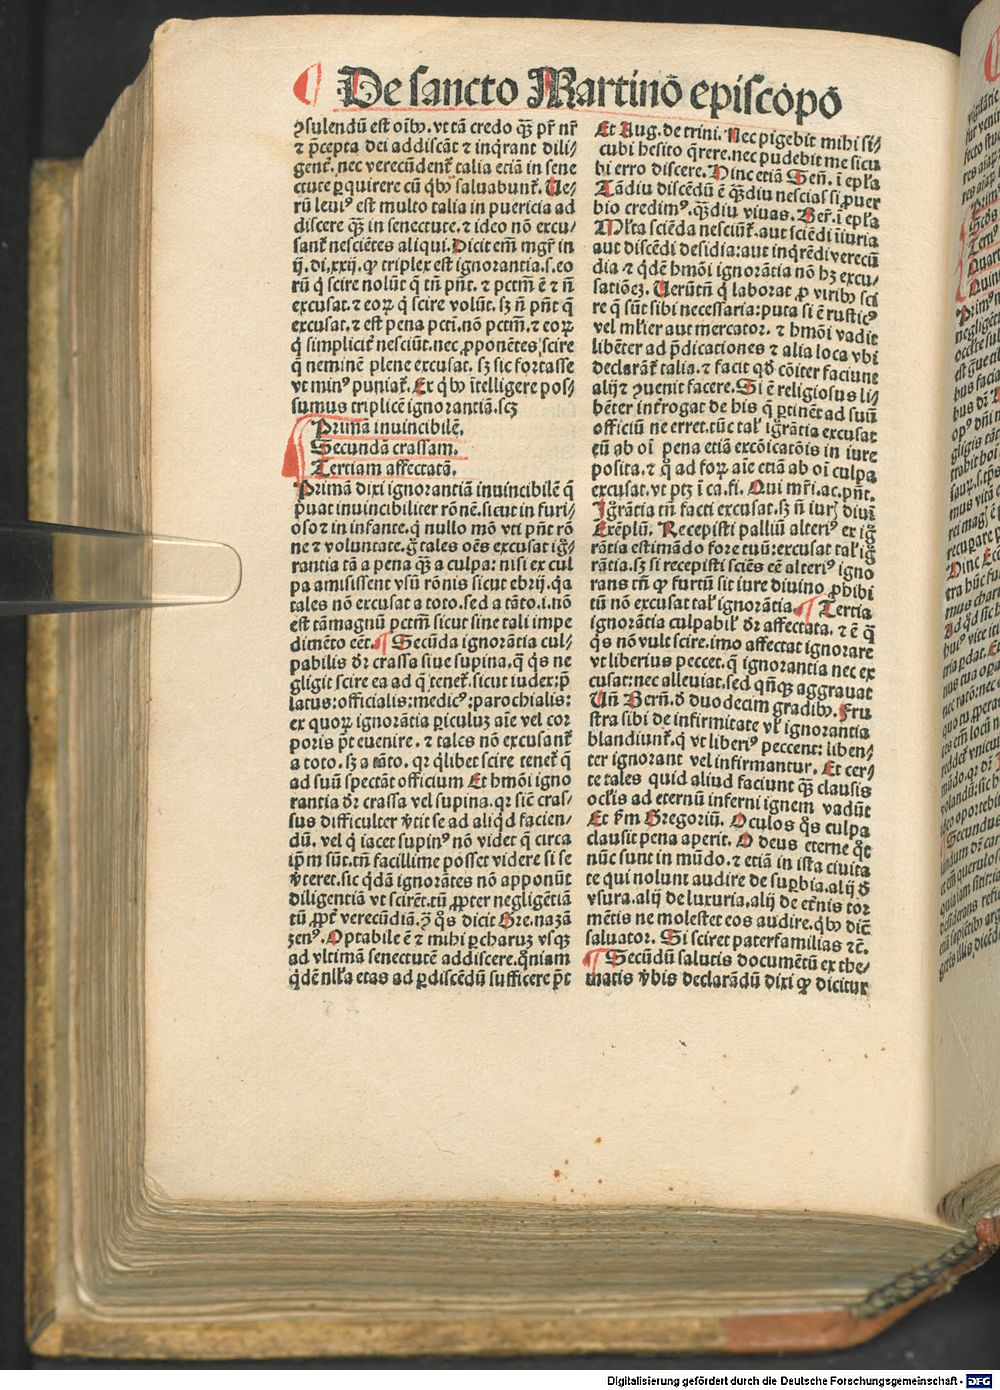 De sancto Martinō episcopō
ꝯsulendū est oīb⁹. vt tā credo qꝫ pr̄ nr̄
⁊ p̄cepta dei addiscāt ⁊ inq̇rant dili/
gent̄. nec verecūdent̄ talia etiā in sene
ctute ꝑquirere cū q̇b⁹ saluabunt̄. Ue/
rū leui⁹ est multo talia in puericia ad
discere qꝫ in senectute. ⁊ ideo nō excu/
sant̄ nesciētes aliqui. Dicit em̄ mgr̄ in
ij. di. xxij. ꝙ triplex est ignorantia. s. eo
rū q̇ scire nolūt q̄ tn̄ pn̄t. ⁊ pctm̄ ē ⁊ n̄
excusat. ⁊ eoꝝ q̇ scire volūt. sꝫ n̄ pn̄t q̄
excusat. ⁊ est pena pcti. nō pctm̄. ⁊ eoꝝ
q̇ simplicit̄ nesciūt. nec ꝓponētes scire
q̄ neminē plene excusat. sꝫ sic fortasse
vt min⁹ puniat̄. Ex q̇b⁹ ītelligere pos/
sumus triplicē ignorantiā. scꝫ
Primā inuincibilē.
Secundā crassam.
Tertiam affectatā.
Primā dixi ignorantiā inuincibilē q̄
p̄uat inuincibiliter rōnē. sicut in furi/
oso ⁊ in infante. q̇ nullo mō vti pn̄t rō
ne ⁊ voluntate. g̊ tales oēs excusat ig̊/
rantia tā a pena qꝫ a culpa: nisi ex cul
pa amisissent vsū rōnis sicut ebrij. qa
tales nō excusat a toto. sed a tāto. i. nō
est tāmagnū pctm̄ sicut sine tali impe
dimēto eēt. ¶ Secūda ignorātia cul/
pabilis dr̄ crassa siue supina. q̄ q̇s ne
gligit scire ea ad q̄ tenet̄. sicut iudex: p̄
latus: officialis: medic⁹: parochialis:
ex quoꝝ ignorātia ꝑiculuꝫ aīe vel cor
poris pt̄ euenire. ⁊ tales nō excusant̄
a toto. sꝫ a tāto. qꝛ q̇libet scire tenet̄ q̄
ad suū spectāt officium Et hmōi igno
rantia dr̄ crassa vel supina. qꝛ sic̄ cras/
sus difficulter v̄tit se ad aliq̇d facien/
dū. vel q̇ iacet supin⁹ nō videt q̄ circa
ip̄m sūt. tn̄ facillime posset videre si se
v̄teret. sic q̇dā ignorātes nō apponūt
diligentiā vt scirēt. tū ꝓpter negligētiā
tū ꝓpt̄ verecūdiā. ꝯ̄ q̇s dicit Gre. nazā
zen⁹. Optabile ē ⁊ mihi ꝑcharuꝫ vsqꝫ
ad vltimā senectutē addiscere. qm̄niam
q̇dē nlla etas ad ꝑdiscēdū sufficere pt̄
Et Aug. de trini. Nec pigebit mihi si/
cubi hesito q̄rere. nec pudebit me sicu
bi erro discere. Hinc etiā Sen̄. ī epl̄a
Tādiu discēdū ē qꝫdiu nescias si ꝓuer
bio credim⁹. qꝫdiu viuas. Ber̄. ī epl̄a
Ml̄ta sciēda nesciūt̄. aut sciēdi īiuria
aut discēdi desidia: aut inq̇rēdi verecū
dia ⁊ q̇dē hmōi ignorātia nō hꝫ excu/
satiōeꝫ. Uerūtn̄ q̇ laborat ꝓ virib⁹ sci
re q̄ sūt sibi necessaria: puta si ē rustic⁹
vel ml̄ier aut mercator. ⁊ hmōi vadit
libēter ad p̄dicationes ⁊ alia loca vbi
declarāt̄ talia. ⁊ facit qd̄ cōiter faciunt
alij ⁊ ꝯuenit facere. Si ē religiosus li/
bēter int̄rogat de his q̄ ꝑtinēt ad suū
officiū ne erret. tūc tal̄ ig̊rātia excusat
eū ab oī pena etiā excōicatōis in iure
posita. ⁊ q̊ ad foꝝ aīe etiā ab oī culpa
excusat. vt ptꝫ ī ca. fi. Qui mr̄i. ac. pn̄t.
Ig̊rātia tn̄ facti excusat. sꝫ n̄ iurꝭ diuī
Exēplū. Recepisti palliū alteri⁹ ex ig̊
rātia estimādo fore tuū: excusat tal̄ ig̊
rātia. sꝫ si recepisti sciēs eē alteri⁹ igno
rans tn̄ ꝙ furtū sit iure diuino ꝓhibi
tū nō excusat tal̄ ignorātia. ¶ Tertia
ignorātia culpabil̄ dr̄ affectata. ⁊ ē q̄
q̇s nō vult scire. imo affectat ignorare
vt liberius peccet. q̄ ignorantia nec ex
cusat: nec alleuiat. sed qn̄qꝫ aggrauat
Un̄ Bern̄. d̄ duodecim gradib⁹. Fru
stra sibi de infirmitate vl̄ ignorantia
blandiunt̄. q̇ vt liberi⁹ peccent: liben/
ter ignorant vel infirmantur. Et cer/
te tales quid aliud faciunt qꝫ clausis
ocl̄is ad eternū inferni ignem vadūt
Et ẜm Gregoriū. Oculos q̊s culpa
clausit pena aperit. O deus eterne q̊t
nūc sunt in mūdo. ⁊ etiā in ista ciuita
te qui nolunt audire de suꝑbia. alij d̄
vsura. alij de luxuria. alij de et̄nis tor
mētis ne molestet eos audire. q̇b⁹ dic̄
saluator. Si sciret paterfamilias ⁊c̄.
¶ Secūdū salutis documētū ex the/
matis v̄bis declarādū dixi ꝙ dicitur
Digitalisierung gefördert durch die Deutsche Forschungsgemeinschaft - DFG